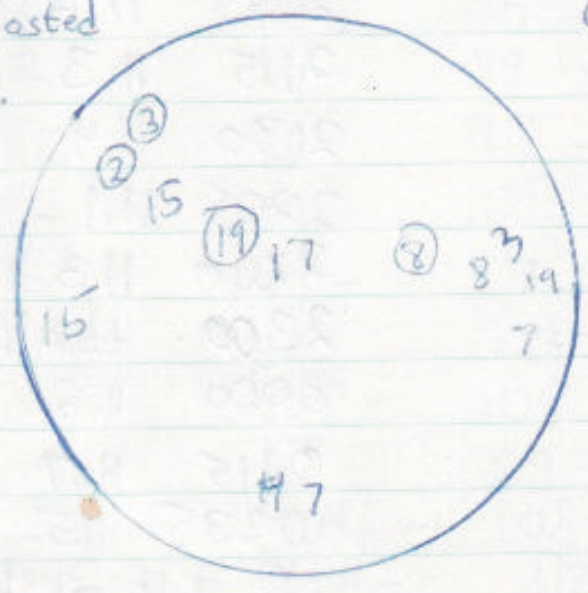 osted
③
②
15
⑲ 17 ⑧ 8 3 19
15
7
7